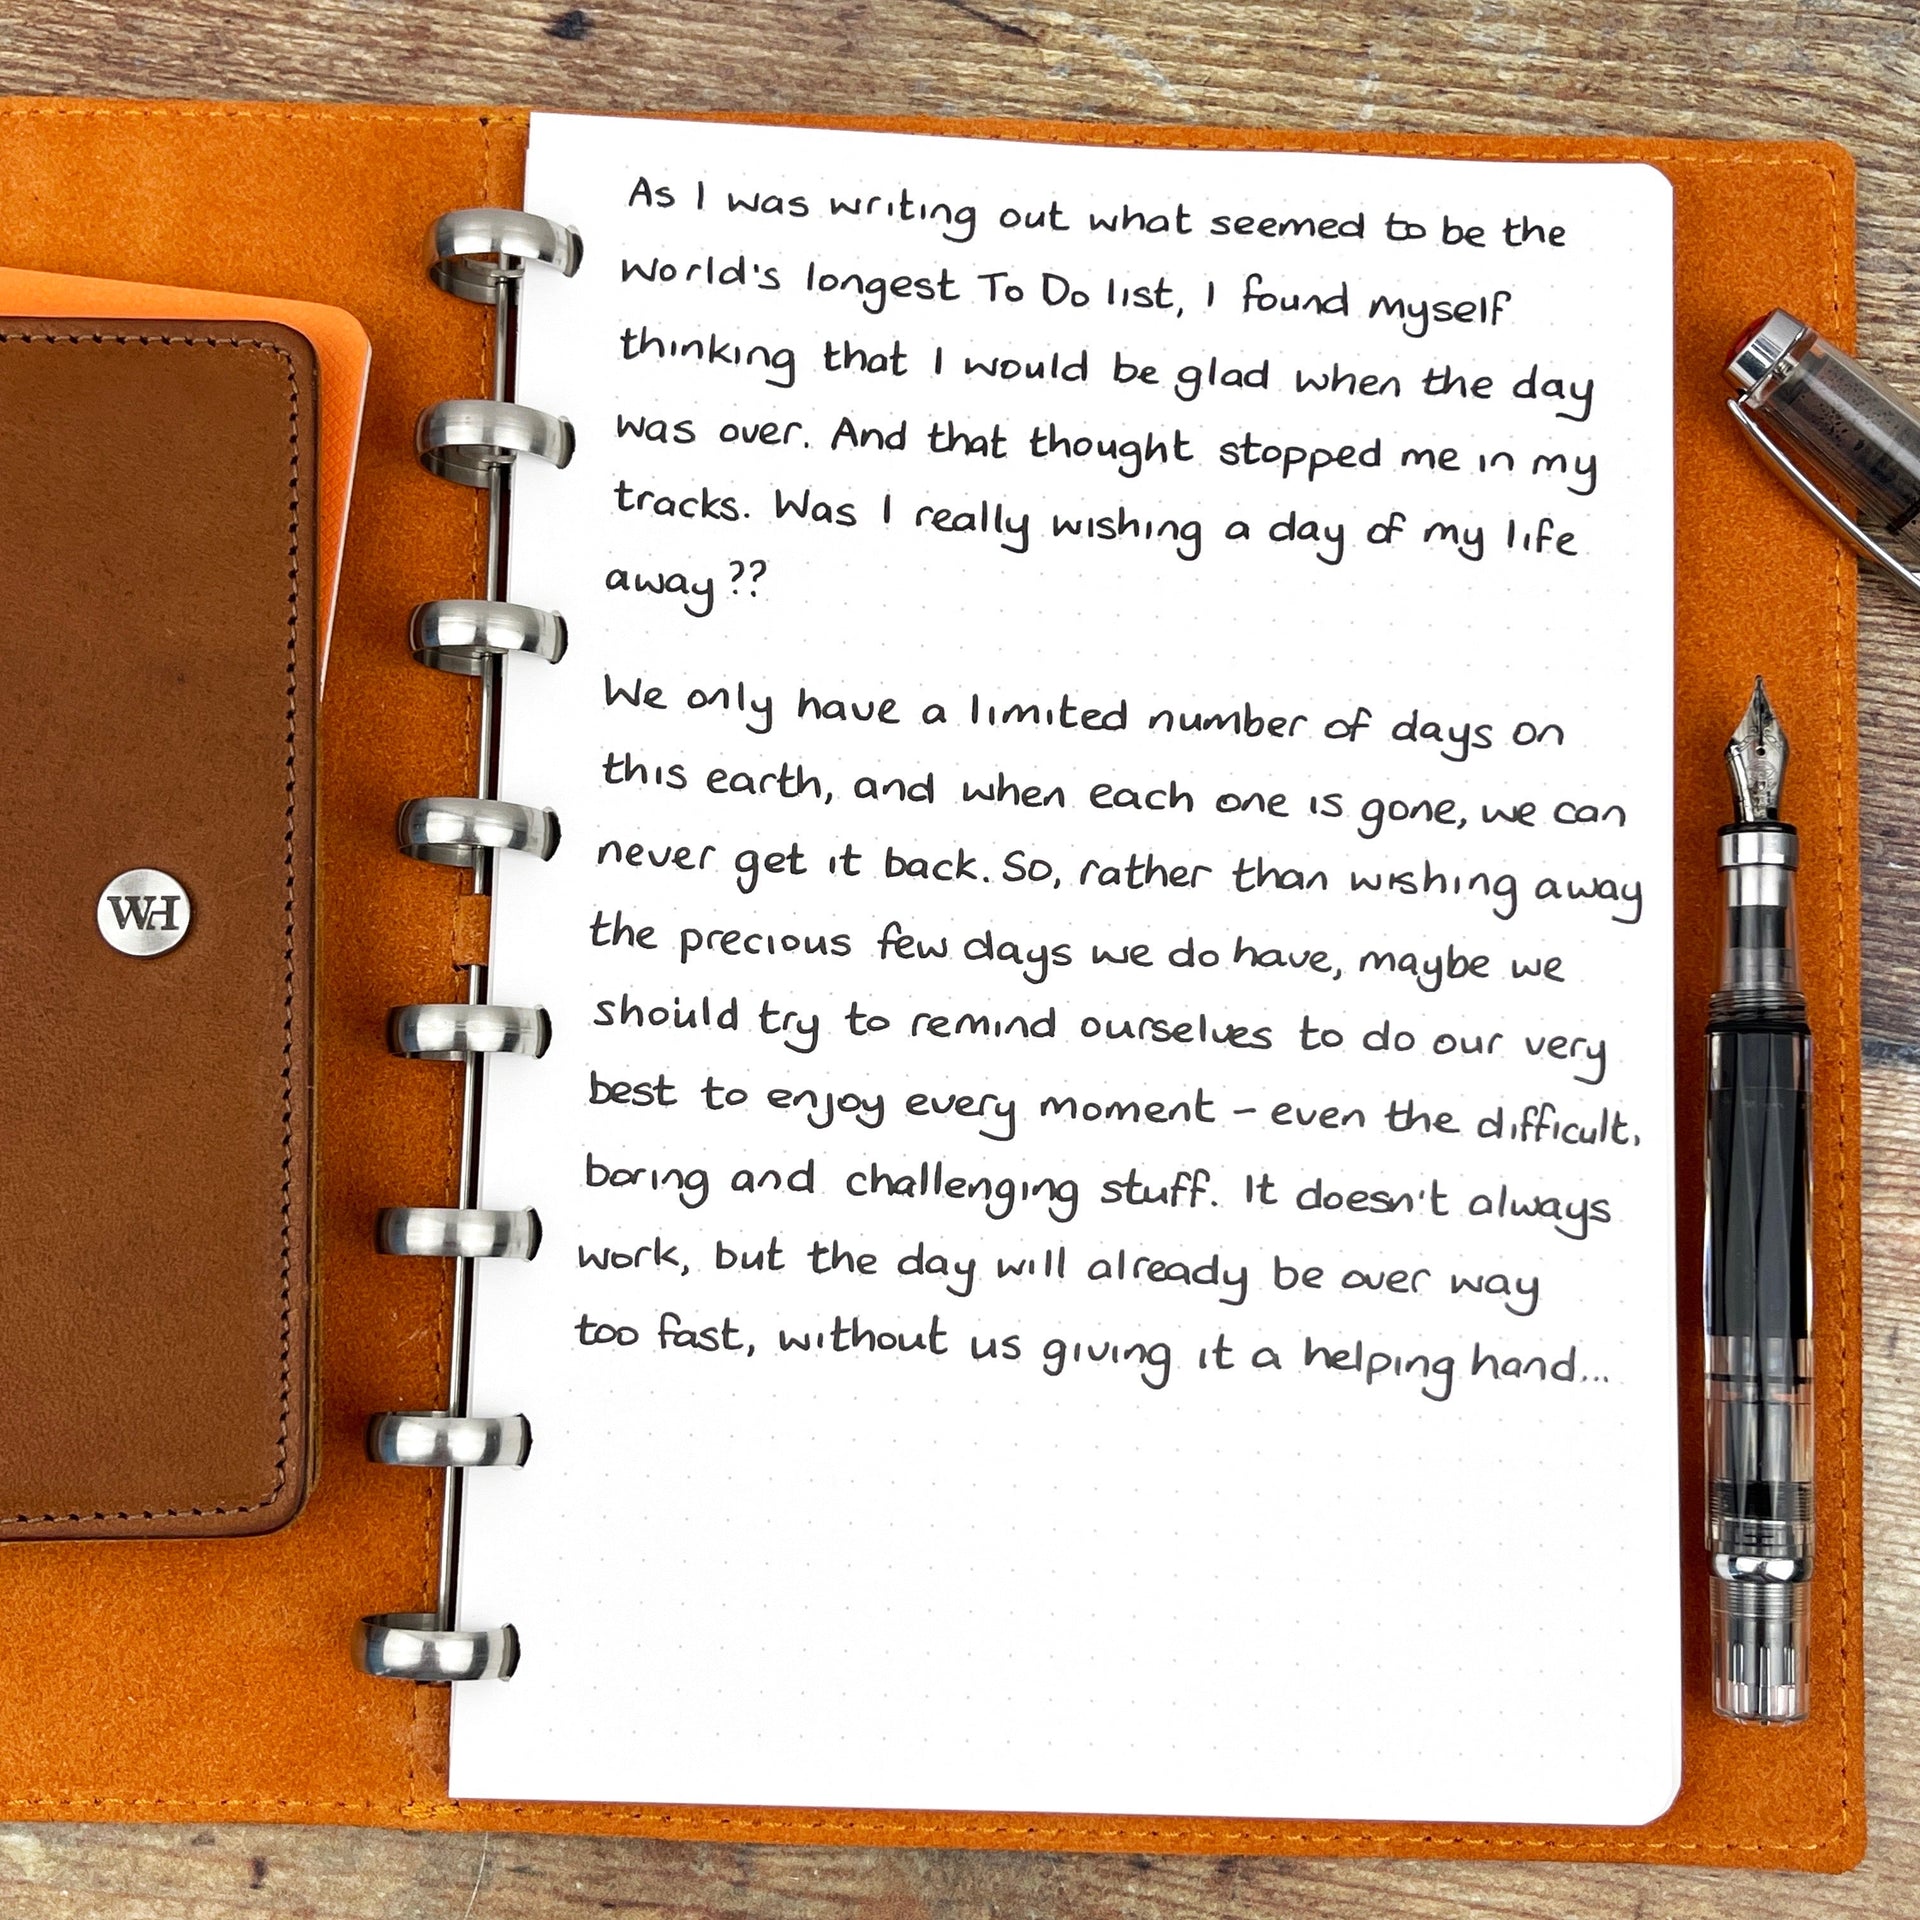 WH
As I was writing out what seemed to be the
World's longest To Do list, I found myself
thinking that I would be glad when the day
was over. And that thought stopped me in my
tracks. Was I really wishing a day of my life
away??
We only have a limited number of days on
this earth, and when each one is gone, we can
never get it back. So, rather than wishing away
the precious few days we do have, maybe we
should try to remind ourselves to do our very
best to enjoy every moment – even the difficult,
boring and challenging stuff. It doesn't always
work, but the day will already be over way
too fast, without us giving it a helping hand...